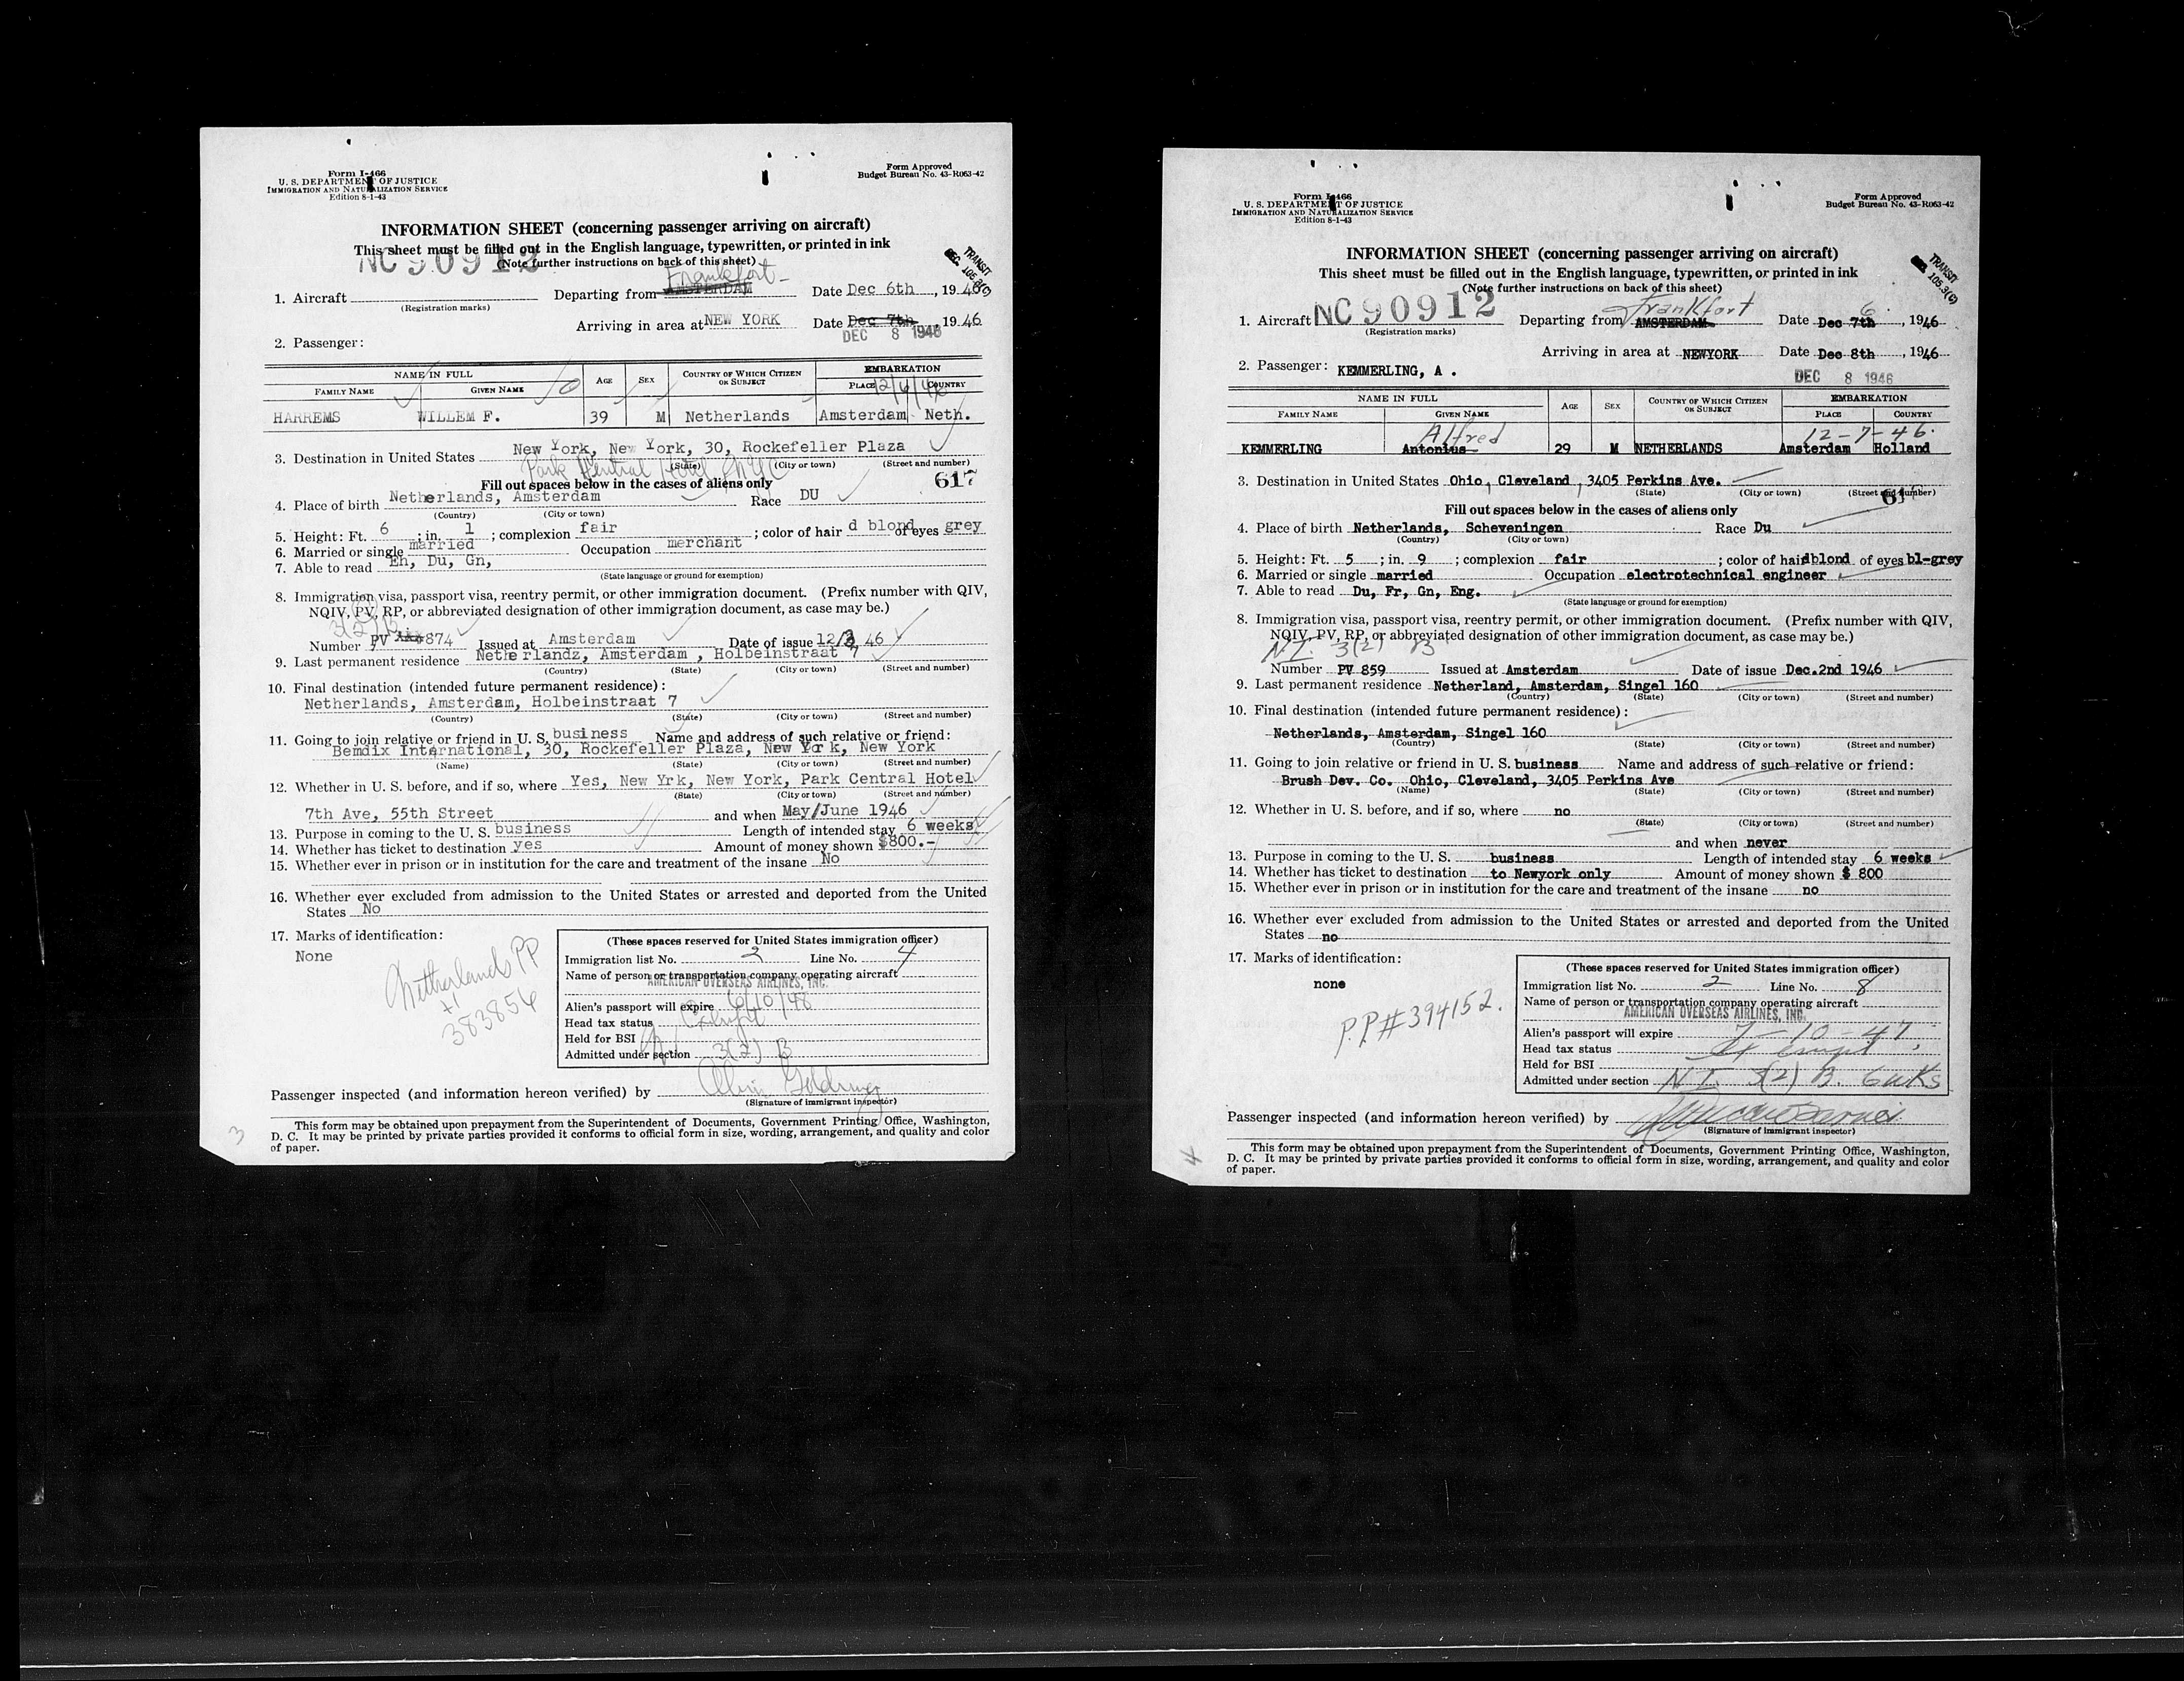 Form I-466
U. S. DEPARTMENT OF JUSTICE
IMMIGRATION AND NATURALIZATION SERVICE
Edition 8-1-43
Form Approved
Budget Bureau No. 43-R063-42
INFORMATION SHEET (concerning passenger arriving on aircraft)
This sheet must be filled out in the English language, typewritten, or printed in ink
(Note further instructions on back of this sheet)
NC 90912
TRANSIT
DEC. 105.3(C)
Frankfort
1. Aircraft Departing from AMSTERDAM Date Dec 6th, 1946
(Registration marks)
Arriving in area at NEW YORK Date Dec 7th, 1946
DEC 8 1946
2. Passenger:
NAME IN FULL AGE SEX COUNTRY OF WHICH CITIZEN OR SUBJECT EMBARKATION
FAMILY NAME GIVEN NAME PLACE COUNTRY
HARREMS WILLEM F. 39 M Netherlands Amsterdam Neth.
3. Destination in United States New York, New York, 30, Rockefeller Plaza
(State) (City or town) (Street and number)
Park Central Hotel NYC
Fill out spaces below in the cases of aliens only
617
4. Place of birth Netherlands, Amsterdam Race DU
(Country) (City or town)
5. Height: Ft. 6 ; in. 1 ; complexion fair ; color of hair d blond of eyes grey
6. Married or single married Occupation merchant
7. Able to read Eh, Du, Gn,
(State language or ground for exemption)
8. Immigration visa, passport visa, reentry permit, or other immigration document. (Prefix number with QIV,
NQIV, PV, RP, or abbreviated designation of other immigration document, as case may be.)
3(2)B
Number PV 874 Issued at Amsterdam Date of issue 12/3 46
9. Last permanent residence Netherlandz, Amsterdam , Holbeinstraat 7
(Country) (State) (City or town) (Street and number)
10. Final destination (intended future permanent residence):
Netherlands, Amsterdam, Holbeinstraat 7
(Country) (State) (City or town) (Street and number)
11. Going to join relative or friend in U. S. business Name and address of such relative or friend:
Bemdix International, 30, Rockefeller Plaza, New York, New York
(Name) (State) (City or town) (Street and number)
12. Whether in U. S. before, and if so, where Yes, New Yrk, New York, Park Central Hotel
(State) (City or town) (Street and number)
7th Ave, 55th Street and when May/June 1946
13. Purpose in coming to the U. S. business Length of intended stay 6 weeks
14. Whether has ticket to destination yes Amount of money shown $800.-
15. Whether ever in prison or in institution for the care and treatment of the insane No
16. Whether ever excluded from admission to the United States or arrested and deported from the United
States No
17. Marks of identification:
None
Netherlands PP
# 383854
(These spaces reserved for United States immigration officer)
Immigration list No. 2 Line No. 4
Name of person or transportation company operating aircraft
AMERICAN OVERSEAS AIRLINES, INC.
Alien's passport will expire 6/10/48
Head tax status Exempt
Held for BSI
Admitted under section 3(2) B
Passenger inspected (and information hereon verified) by
(Signature of immigrant inspector)
This form may be obtained upon prepayment from the Superintendent of Documents, Government Printing Office, Washington,
D. C. It may be printed by private parties provided it conforms to official form in size, wording, arrangement, and quality and color
of paper.
3
Form I-466
U. S. DEPARTMENT OF JUSTICE
IMMIGRATION AND NATURALIZATION SERVICE
Edition 8-1-43
Form Approved
Budget Bureau No. 43-R063-42
INFORMATION SHEET (concerning passenger arriving on aircraft)
This sheet must be filled out in the English language, typewritten, or printed in ink
(Note further instructions on back of this sheet)
TRANSIT
105.3(C)
Frankfort 6
1. Aircraft NC 90912 Departing from AMSTERDAM Date Dec 7th, 1946
(Registration marks)
Arriving in area at NEWYORK Date Dec 8th, 1946
2. Passenger: KEMMERLING, A .
DEC 8 1946
NAME IN FULL AGE SEX COUNTRY OF WHICH CITIZEN OR SUBJECT EMBARKATION
FAMILY NAME GIVEN NAME PLACE COUNTRY
Alfred 12-7-46.
KEMMERLING Antonius 29 M NETHERLANDS Amsterdam Holland
3. Destination in United States Ohio, Cleveland , 3405 Perkins Ave.
(State) (City or town) (Street and number)
Fill out spaces below in the cases of aliens only
4. Place of birth Netherlands, Scheveningen Race Du
(Country) (City or town)
5. Height: Ft. 5 ; in. 9 ; complexion fair ; color of hair dblond of eyes bl-grey
6. Married or single married Occupation electrotechnical engineer
7. Able to read Du, Fr, Gn, Eng.
(State language or ground for exemption)
8. Immigration visa, passport visa, reentry permit, or other immigration document. (Prefix number with QIV,
NQIV, PV, RP, or abbreviated designation of other immigration document, as case may be.)
N.I. 3(2) B
Number PV 859 Issued at Amsterdam Date of issue Dec.2nd 1946
9. Last permanent residence Netherland, Amsterdam, Singel 160
(Country) (State) (City or town) (Street and number)
10. Final destination (intended future permanent residence):
Netherlands, Amsterdam, Singel 160
(Country) (State) (City or town) (Street and number)
11. Going to join relative or friend in U. S. business Name and address of such relative or friend:
Brush Dev. Co. Ohio, Cleveland, 3405 Perkins Ave
(Name) (State) (City or town) (Street and number)
12. Whether in U. S. before, and if so, where no
(State) (City or town) (Street and number)
and when never
13. Purpose in coming to the U. S. business Length of intended stay 6 weeks
14. Whether has ticket to destination to Newyork only Amount of money shown $ 800
15. Whether ever in prison or in institution for the care and treatment of the insane no
16. Whether ever excluded from admission to the United States or arrested and deported from the United
States no
17. Marks of identification:
none
P.P.# 394152.
(These spaces reserved for United States immigration officer)
Immigration list No. 2 Line No. 8
Name of person or transportation company operating aircraft
AMERICAN OVERSEAS AIRLINES, INC.
Alien's passport will expire 7-10-47.
Head tax status Exempt
Held for BSI
Admitted under section N.I. 3(2) B. 6 wks
Passenger inspected (and information hereon verified) by
(Signature of immigrant inspector)
This form may be obtained upon prepayment from the Superintendent of Documents, Government Printing Office, Washington,
D. C. It may be printed by private parties provided it conforms to official form in size, wording, arrangement, and quality and color
of paper.
4